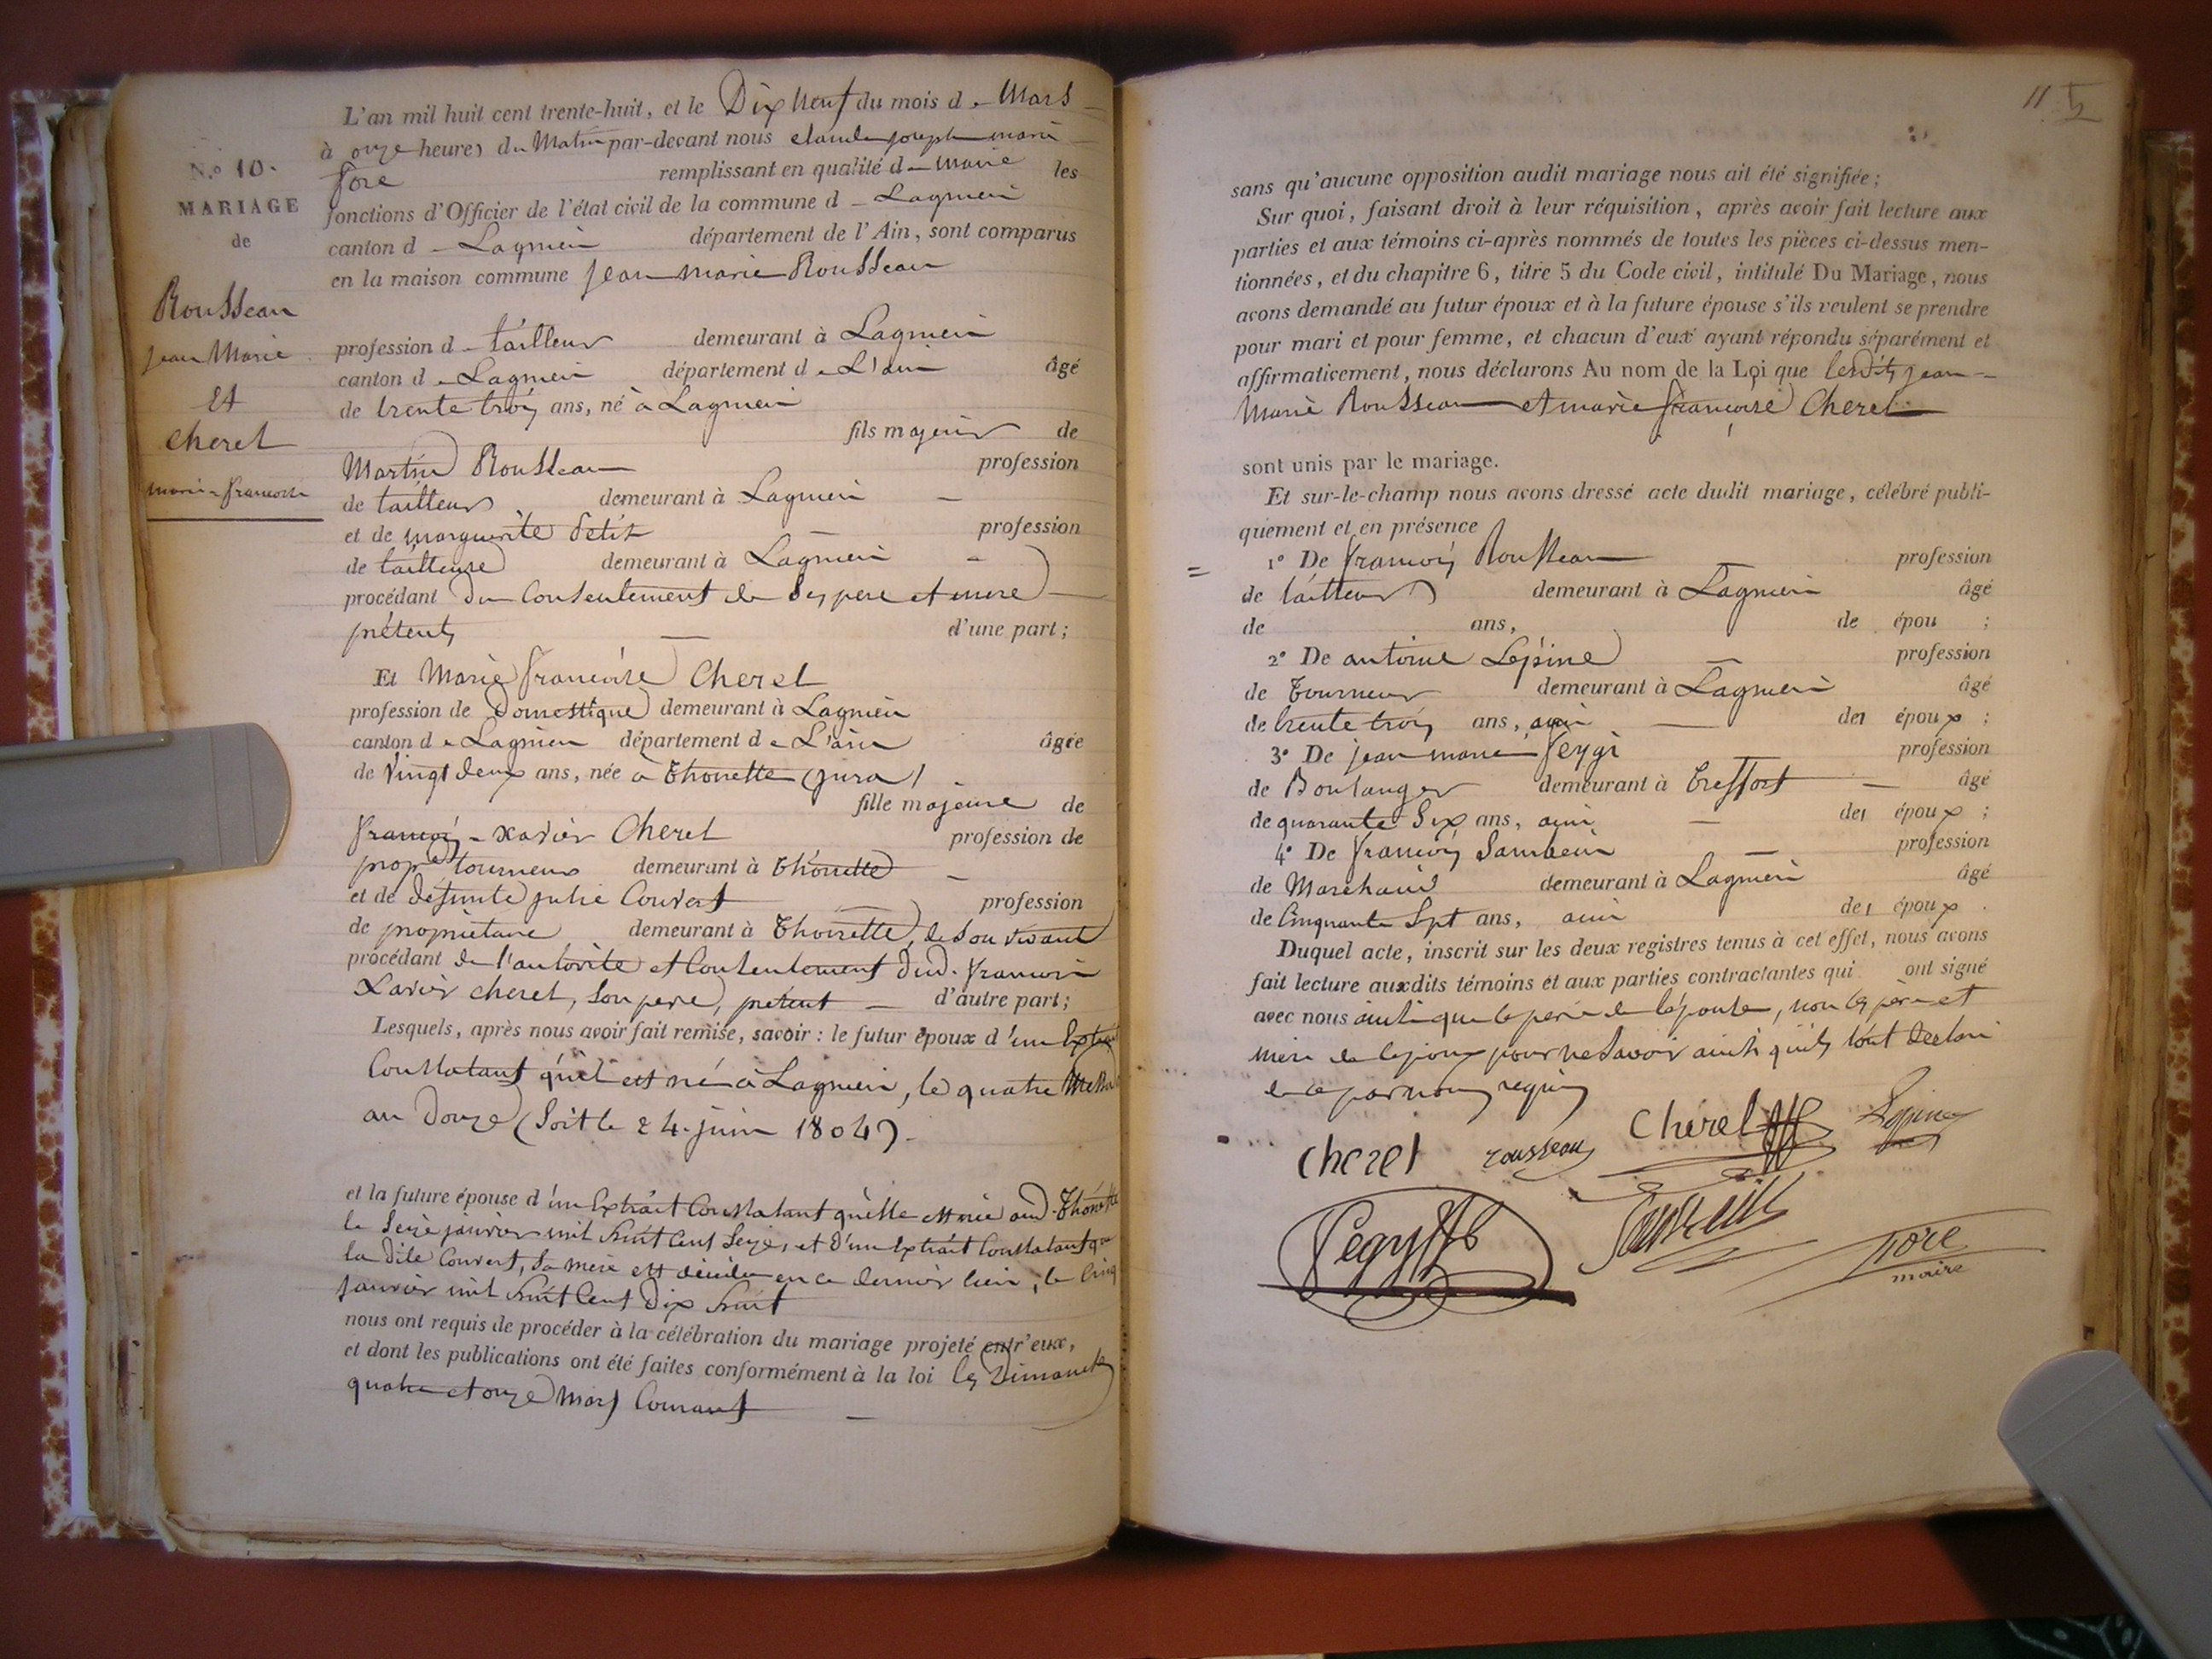 N.º 10.
MARIAGE
de
Rousseau
jean Marie
Et
Cheret
marie-francoise
L'an mil huit cent trente-huit, et le Dix Neuf du mois de Mars
à onze heures du Matin par-devant nous claude joseph marie
fore remplissant en qualité de maire les
fonctions d'Officier de l'état civil de la commune de Lagnieu
canton de Lagnieu département de l'Ain, sont comparus
en la maison commune jean marie Rousseau
profession de tailleur demeurant à Lagnieu
canton de Lagnieu département de L'ain âgé
de trente trois ans, né à Lagnieu
fils majeur de
Martin Rousseau profession
de tailleur demeurant à Lagnieu
et de marguerite Petit profession
de tailleuse demeurant à Lagnieu
procédant du Consentement de ses pere et mere
présents d'une part;
Et Marie francoise Cheret
profession de Domestique demeurant à Lagnieu
canton de Lagnieu département de L'ain âgée
de Vingt deux ans, née à Thoirette (jura)
fille majeure de
francois-xavier Cheret profession de
propre tourneur demeurant à Thoirette
et de défunte julie Convert profession
de propriétaire demeurant à Thoirette, de son vivant
procédant de l'autorité et Consentement dud. francois
Xavier cheret, son pere, présent d'autre part;
Lesquels, après nous avoir fait remise, savoir : le futur époux d'un Extrait
Constatant qu'il est né à Lagnieu, le quatre Messidor
an Douze (soit le 24 juin 1804).
et la future épouse d'un Extrait Constatant qu'elle est née aud. Thoirette
le Seize janvier mil huit Cent Seize, et d'un Extrait Constatant que
la dite Convert, sa mere est décédée en ce dernier lieu, le Cinq
janvier mil huit Cent Dix huit
nous ont requis de procéder à la célébration du mariage projeté entr'eux,
et dont les publications ont été faites conformément à la loi les Dimanches
quatre et onze Mars Courant
11
sans qu'aucune opposition audit mariage nous ait été signifiée;
Sur quoi, faisant droit à leur réquisition, après avoir fait lecture aux
parties et aux témoins ci-après nommés de toutes les pièces ci-dessus men-
tionnées, et du chapitre 6, titre 5 du Code civil, intitulé Du Mariage, nous
avons demandé au futur époux et à la future épouse s'ils veulent se prendre
pour mari et pour femme, et chacun d'eux ayant répondu séparément et
affirmativement, nous déclarons Au nom de la Loi que lesdits jean
Marie Rousseau et marie françoise Cheret
sont unis par le mariage.
Et sur-le-champ nous avons dressé acte dudit mariage, célébré publi-
quement et en présence
1º De francois Rousseau profession
de tailleur demeurant à Lagnieu âgé
de ans, de épou ;
2º De antoine Lépine profession
de Tourneur demeurant à Lagnieu âgé
de trente trois ans, ami des époux ;
3º De jean marie feygi profession
de Boulanger demeurant à Treffort âgé
de quarante Six ans, ami des époux ;
4º De francois profession
de Maréchaud demeurant à Lagnieu âgé
de Cinquante Sept ans, ami des époux.
Duquel acte, inscrit sur les deux registres tenus à cet effet, nous avons
fait lecture auxdits témoins et aux parties contractantes qui ont signé
avec nous ainsi que le pere de l'épouse, non les père et
mère de l'epoux pour ne savoir ainsi qu'ils l'ont declaré
de ce par nous requis
cheret rousseau Cheret Lepine
fore
maire